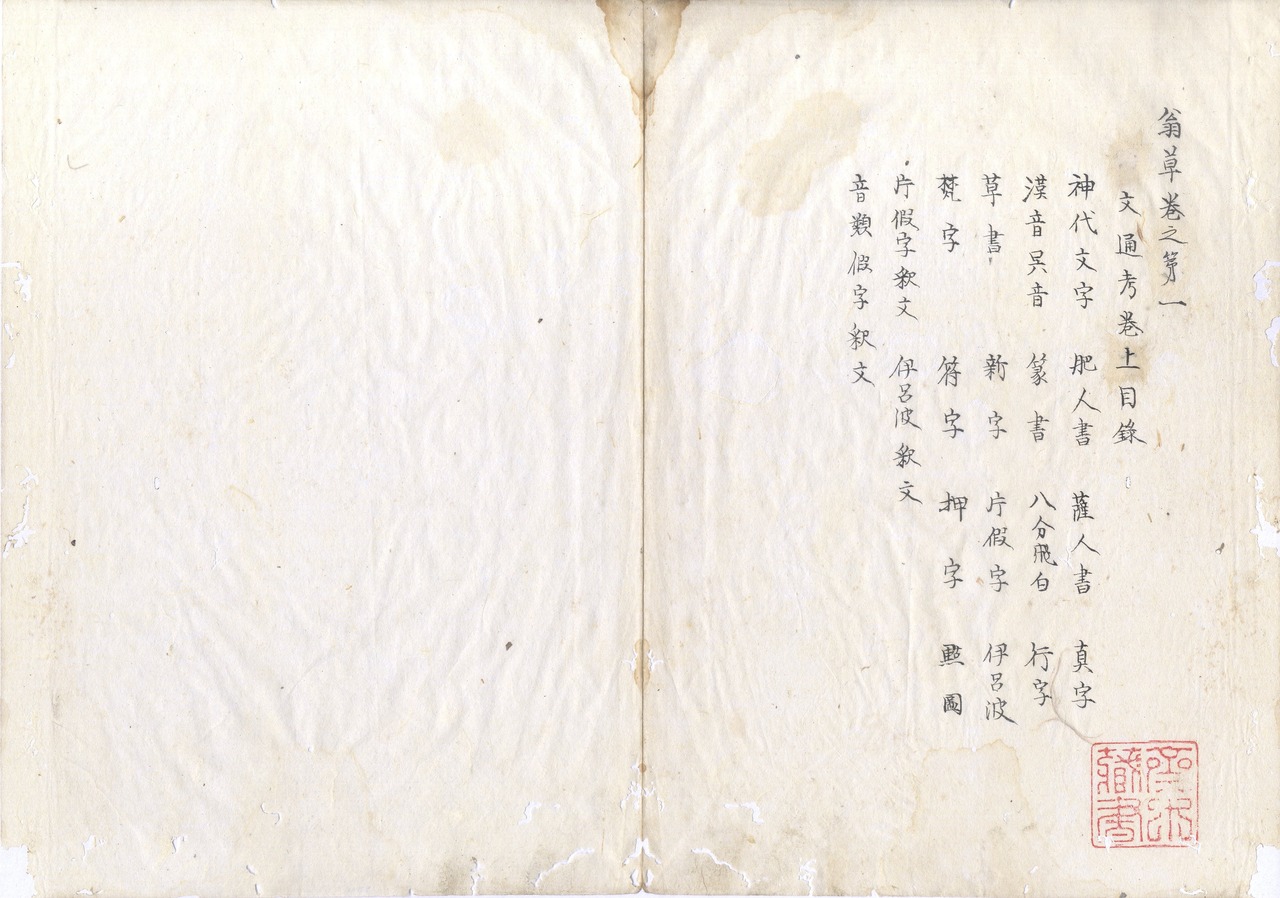 翁草巻之第一
文通考巻上目錄
神代文字 肥人書 薩人書 真字
漢音呉音 篆書 八分飛白 行字
草書 新字 片假字 伊呂波
梵字 符字 押字 點圖
片假字釈文 伊呂波釈文
音類假字釈文
藏書